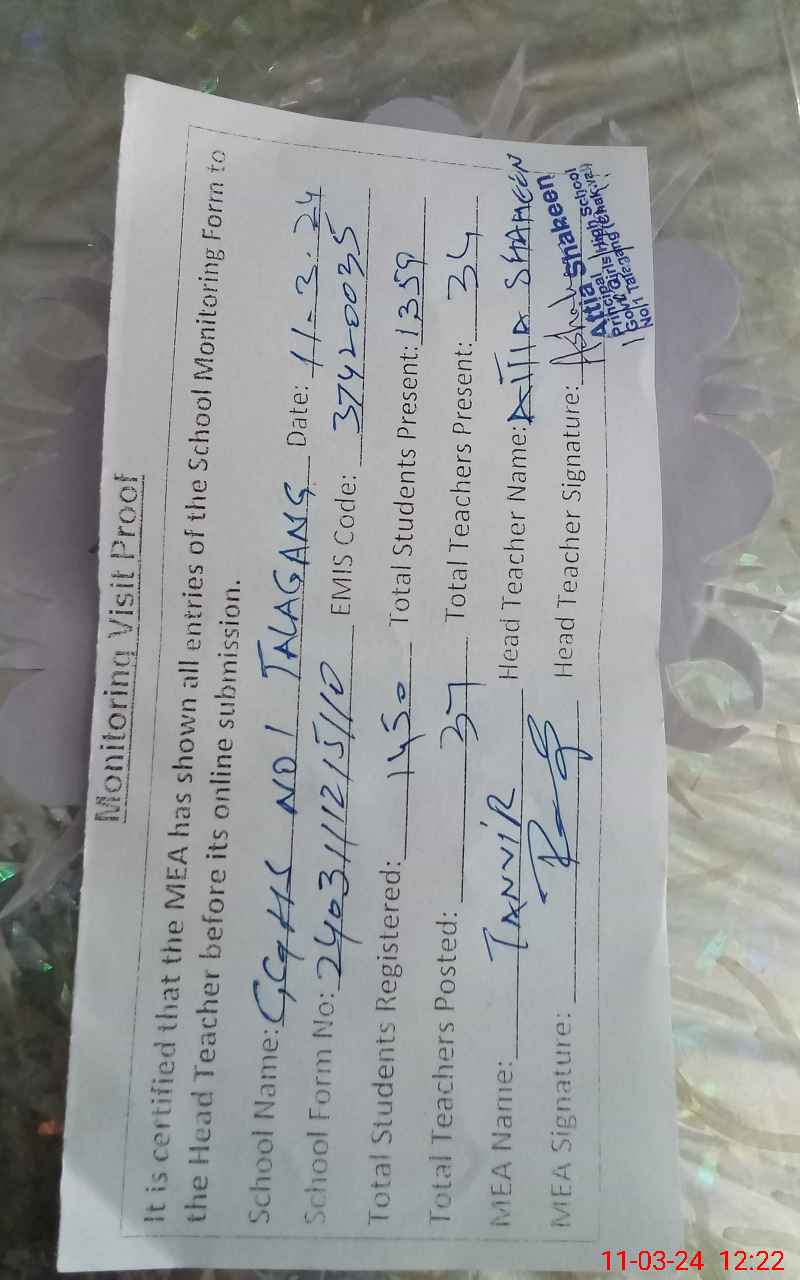 Monitoring Visit Proof
It is certified that the MEA has shown all entries of the School Monitoring Form to
the Head Teacher before its online submission.
School Name: GCGHS NO1 TALAGANG Date: 11-3-24
School Form No: 24031112151110 EMIS Code: 37420035
Total Students Registered: 1450 Total Students Present: 1359
Total Teachers Posted: 37 Total Teachers Present: 34
MEA Name: TANVIR Head Teacher Name: ATTIA SHAHEEN
MEA Signature: Head Teacher Signature:
Attia Shaheen
Principal
Govt Girls High School
No1 Talagang
11-03-24 12:22